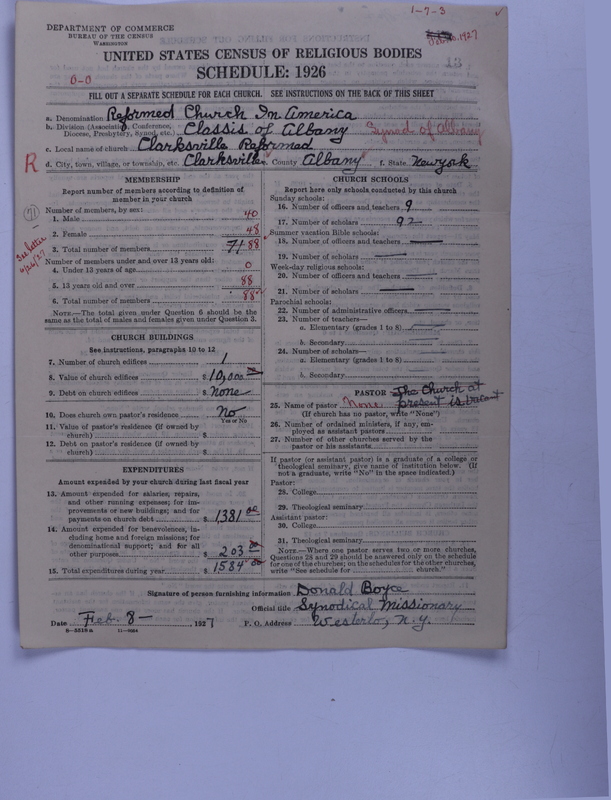 1-7-3
DEPARTMENT OF COMMERCE
BUREAU OF THE CENSUS
WASHINGTON
1927
UNITED STATES CENSUS OF RELIGIOUS BODIES
13
SCHEDULE: 1926
0-0
FILL OUT A SEPARATE SCHEDULE FOR EACH CHURCH. SEE INSTRUCTIONS ON THE BACK OF THIS SHEET
a. Denomination Reformed Church In America
b. Division (Association, Conference, Diocese, Presbytery, Synod, etc.) Classis of Albany Synod of Albany
c. Local name of church Clarksville Reformed
R d. City, town, village, or township, etc. Clarksville e. County Albany f. State New york
MEMBERSHIP
Report number of members according to definition of
member in your church
Number of members, by sex:
1. Male 40
2. Female 48
3. Total number of members 71 88
Number of members under and over 13 years old:
4. Under 13 years of age 0
5. 13 years old and over 88
6. Total number of members 88
NOTE.—The total given under Question 6 should be the
same as the total of males and females given under Question 3.
(71)
See letter
CHURCH BUILDINGS
See instructions, paragraphs 10 to 12
7. Number of church edifices 1
8. Value of church edifices $ 10,000 00
9. Debt on church edifices $ None
10. Does church own pastor's residence No
Yes or No
11. Value of pastor's residence (if owned by
church) $
12. Debt on pastor's residence (if owned by
church) $
EXPENDITURES
Amount expended by your church during last fiscal year
13. Amount expended for salaries, repairs,
and other running expenses; for im-
provements or new buildings; and for
payments on church debt $ 1381 00
14. Amount expended for benevolences, in-
cluding home and foreign missions; for
denominational support; and for all
other purposes $ 203 00
15. Total expenditures during year $ 1584 00
CHURCH SCHOOLS
Report here only schools conducted by this church
Sunday schools:
16. Number of officers and teachers 9
17. Number of scholars 92
Summer vacation Bible schools:
18. Number of officers and teachers
19. Number of scholars
Week-day religious schools:
20. Number of officers and teachers
21. Number of scholars
Parochial schools:
22. Number of administrative officers
23. Number of teachers—
a. Elementary (grades 1 to 8)
b. Secondary
24. Number of scholars—
a. Elementary (grades 1 to 8)
b. Secondary
PASTOR The Church at
present is vacant
25. Name of pastor None
(If church has no pastor, write "None")
26. Number of ordained ministers, if any, em-
ployed as assistant pastors
27. Number of other churches served by the
pastor or his assistants
If pastor (or assistant pastor) is a graduate of a college or
theological seminary, give name of institution below. (If
not a graduate, write "No" in the space indicated.)
Pastor:
28. College
29. Theological seminary
Assistant pastor:
30. College
31. Theological seminary
NOTE.—Where one pastor serves two or more churches,
Questions 28 and 29 should be answered only on the schedule
for one of the churches; on the schedules for the other churches,
write "See schedule for church."
Signature of person furnishing information Donald Boyce
Official title Synodical Missionary
Date Feb. 8— , 1927 P. O. Address Westerlo, N.Y.
8-5518a